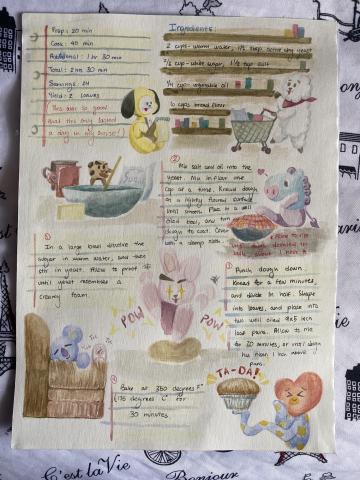 Prep: 20 min
Cook: 40 min
Additional: 1 hr 30 min
Total: 2 hrs 30 min
Servings: 24
Yield: 2 loaves
(This one is so good
that this only lasted
a day in my house!)
Ingredients:
2 cups warm water, 1½ tbsp active dry yeast
2/3 cup white sugar, 1½ tsp salt
¼ cup vegetable oil
6 cups bread flour
②
Mix salt and oil into the
yeast. Mix in flour one
cup at a time. Knead dough
on a lightly floured surface
until smooth. Place in a well
oiled bowl, and turn
dough to coat. Cover
with a damp cloth.
Allow to rise
until dough doubled in
bulk, about 1 hour
①
In a large bowl dissolve the
sugar in warm water, and then
stir in yeast. Allow to proof
until yeast resembles a
creamy foam.
POW
POW
③ Punch dough down.
Knead for a few minutes,
and divide in half. Shape
into loaves, and place into
two well oiled 9x5 inch
loaf pans. Allow to rise
for 30 minutes, or until dough
has risen 1 inch above
pans.
④
Bake at 350 degrees F°
(175 degrees C° for
30 minutes.
TA-DA!
C'est la Vie
Bonjour